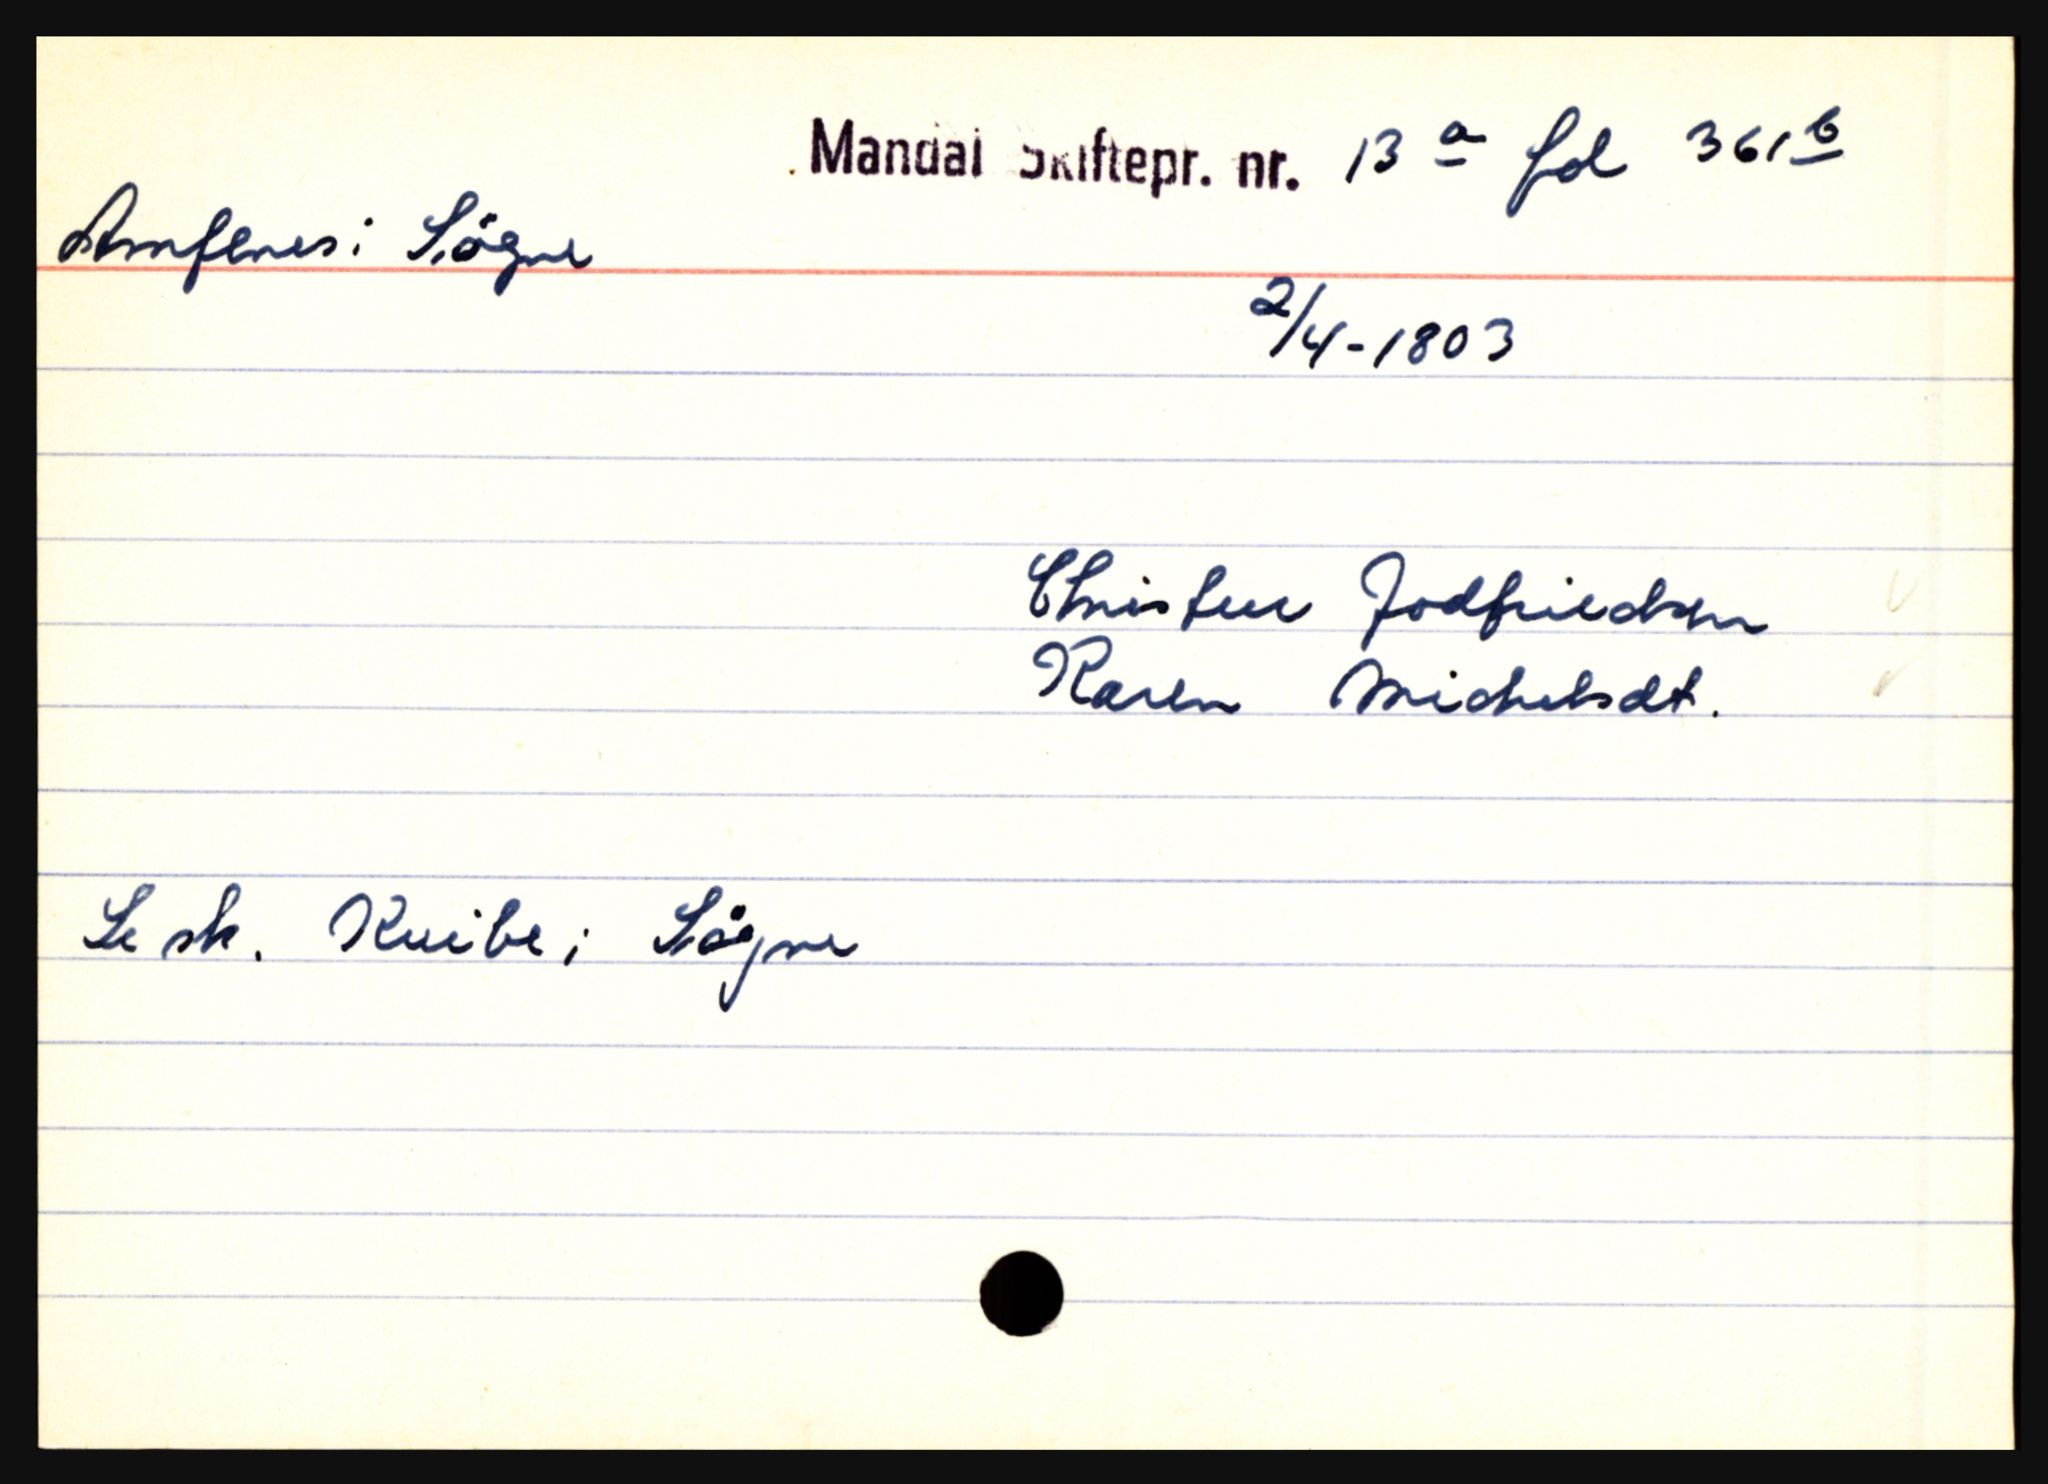 Mandal Skiftepr. nr. 13 a fol 361 b
Amfenes i Søgne
2/4-1803
Christen Jodfriedsen
Karen Michelsdt.
Se sk. Kuibe i Søgne